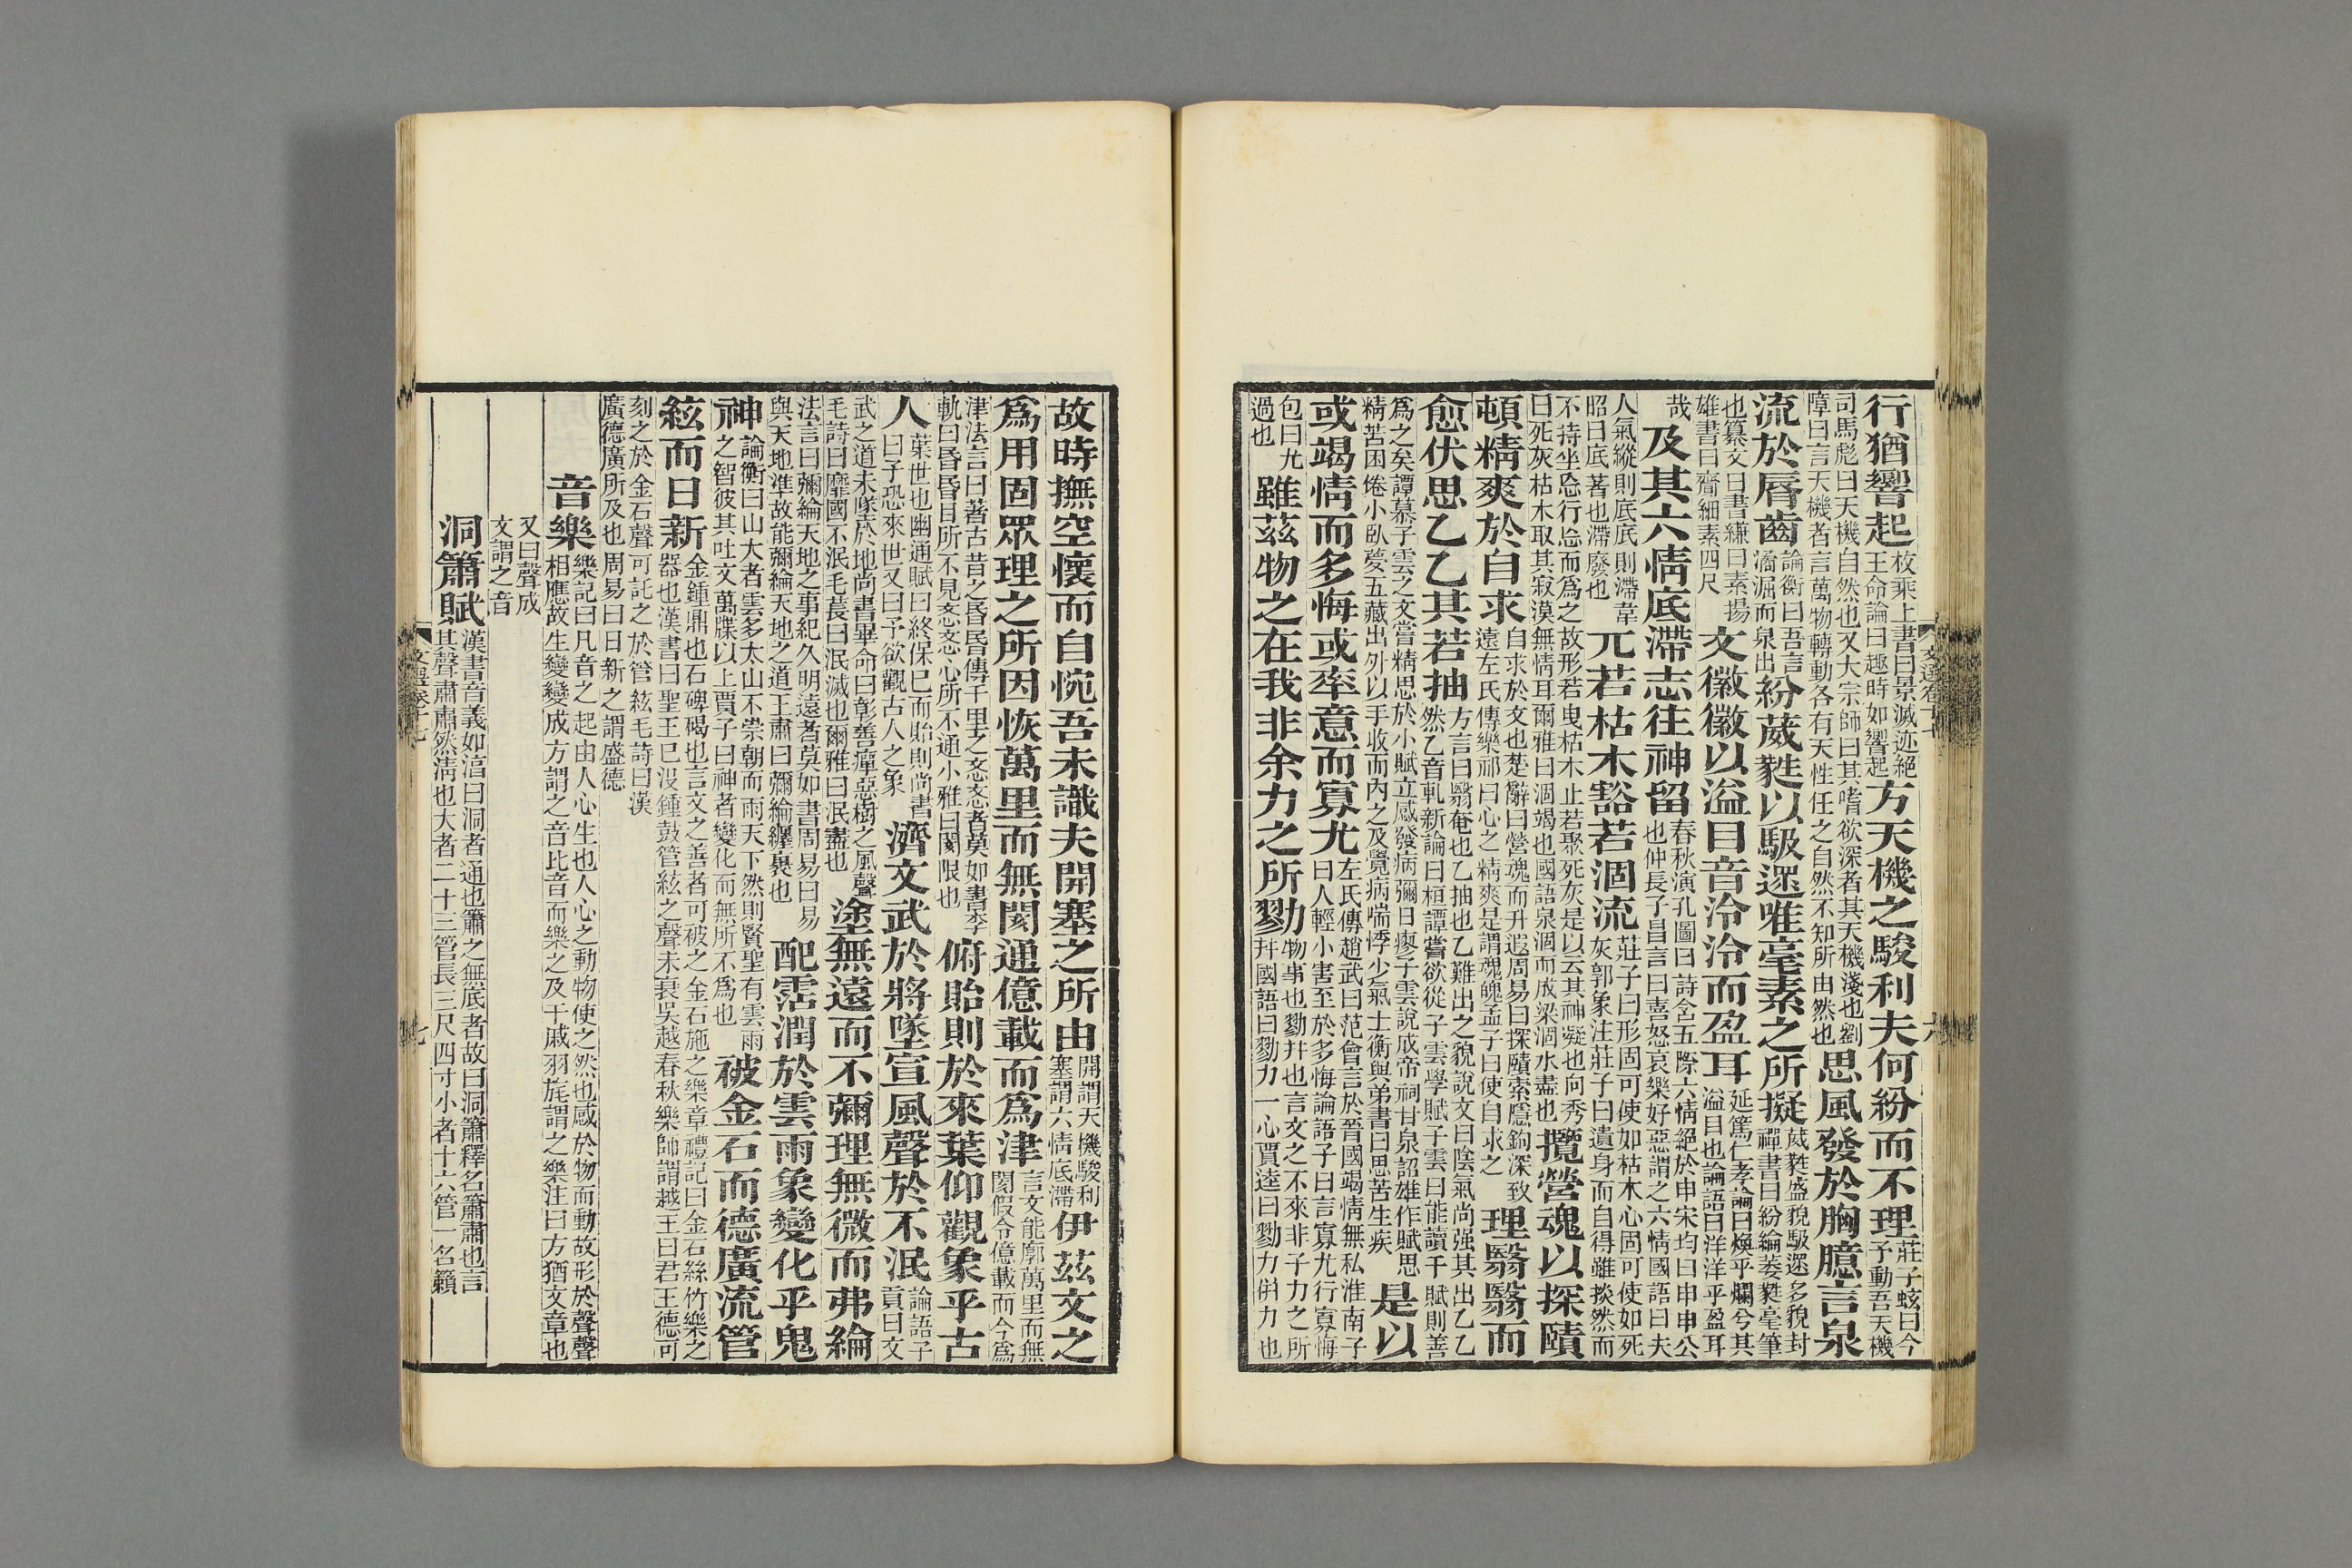 行猶響起枚乘上書曰景滅迹絕王命論曰趣時如響起方天機之駿利夫何紛而不理莊子蚿曰今予動吾天機
司馬彪曰天機自然也又大宗師曰其嗜欲深者其天機淺也劉障曰言天機者言萬物轉動各有天性任之自然不知所由然也思風發於胸臆言泉
流於脣齒論衡曰吾言潏淈而泉出紛葳蕤以馺遝唯毫素之所擬葳蕤盛貌馺遝多貌封禪書曰紛綸萎蕤毫筆
也纂文曰書縑曰素揚雄書曰齎細素四尺文徽徽以溢目音泠泠而盈耳延篤仁孝論曰煥乎爛兮其溢目也論語曰洋洋乎盈耳
哉及其六情底滯志往神留春秋演孔圖曰詩含五際六情絕於申宋均曰申申公也仲長子昌言曰喜怒哀樂好惡謂之六情國語曰夫
人氣縱則底底則滯韋昭曰底著也滯廢也兀若枯木豁若涸流莊子曰形固可使如枯木心固可使如死灰郭象注莊子曰遺身而自得雖掞然而
不持坐忘行忘而為之故形若曳枯木止若聚死灰是以云其神凝也向秀曰死灰枯木取其寂漠無情耳爾雅曰涸竭也國語泉涸而成梁涸水盡也攬營魂以探賾
頓精爽於自求自求於文也楚辭曰營魂而升遐周易曰探賾索隱鉤深致遠左氏傳樂祁曰心之精爽是謂魂魄孟子曰使自求之理翳翳而
愈伏思乙乙其若抽方言曰翳奄也乙抽也乙難出之貌說文曰陰氣尚强其出乙乙然乙音軋新論曰桓譚嘗欲從子雲學賦子雲曰能讀千賦則善
為之矣譚慕子雲之文嘗精思於小賦立感發病彌日瘳子雲說成帝祠甘泉詔雄作賦思精苦困倦小臥夢五藏出外以手收而內之及覺病喘悸少氣士衡與弟書曰思苦生疾是以
或竭情而多悔或率意而寡尤左氏傳趙武曰范會言於晉國竭情無私淮南子曰人輕小害至於多悔論語子曰言寡尤行寡悔
包曰尤過也雖茲物之在我非余力之所勠物事也勠并也言文之不來非予力之所并國語曰勠力一心賈逵曰勠力併力也
故時撫空懷而自惋吾未識夫開塞之所由開謂天機駿利塞謂六情底滯伊茲文之
為用固眾理之所因恢萬里而無閡通億載而為津言文能廓萬里而無閡假令億載而今為
津法言曰著古昔之㖧㖧傳千里之忞忞者莫如書李軌曰昏昏目所不見忞忞心所不通小雅曰閡限也俯貽則於來葉仰觀象乎古
人葉世也幽通賦曰終保已而貽則尚書曰予恐來世又曰予欲觀古人之象濟文武於將墜宣風聲於不泯論語子貢曰文
武之道未墜於地尚書畢命曰彰善癉惡樹之風聲毛詩曰靡國不泯毛萇曰泯滅也爾雅曰泯盡也塗無遠而不彌理無微而弗綸
法言曰彌綸天地之事紀久明遠者莫如書周易曰易與天地準故能彌綸天地之道王肅曰彌綸纏裹也配霑潤於雲雨象變化乎鬼
神論衡曰山大者雲多太山不崇朝而雨天下然則賢聖有雲雨之智彼其吐文萬牒以上賈子曰神者變化而無所不為也被金石而德廣流管
絃而日新金鍾鼎也石碑碣也言文之善者可被之金石施之樂章禮記曰金石絲竹樂之器也漢書曰聖王已沒鍾鼓管絃之聲未衰吳越春秋樂師謂越王曰君王德可
刻之於金石聲可託之於管絃毛詩曰漢廣德廣所及也周易曰日新之謂盛德
音樂樂記曰凡音之起由人心生也人心之動物使之然也感於物而動故形於聲聲相應故生變變成方謂之音比音而樂之及干戚羽旄謂之樂注曰方猶文章也
又曰聲成文謂之音
洞簫賦漢書音義如淳曰洞者通也簫之無底者故曰洞簫釋名簫肅也言其聲肅肅然清也大者二十三管長三尺四寸小者十六管一名籟
文選卷十七
七